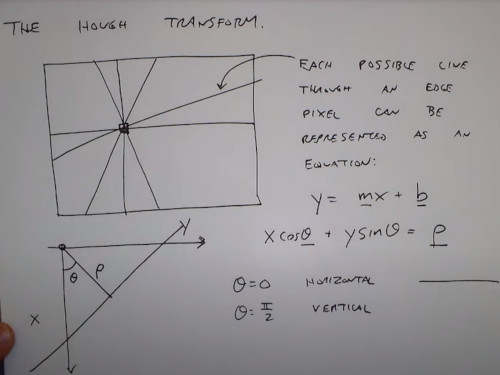 THE HOUGH TRANSFORM.
EACH POSSIBLE LINE
THROUGH AN EDGE
PIXEL CAN BE
REPRESENTED AS AN
EQUATION:
y = mx + b
x cosθ + y sinθ = ρ
θ = 0 HORIZONTAL
θ = π/2 VERTICAL
y
θ
ρ
x